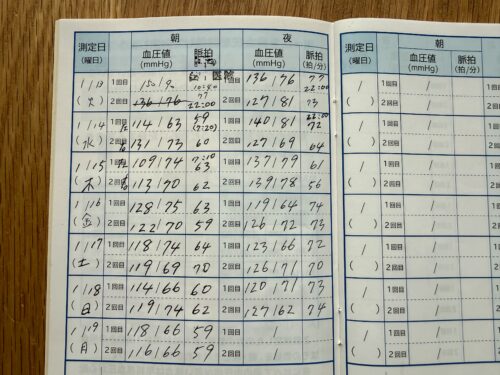 測定日 (曜日) 朝 血圧値 (mmHg) 脈拍 夜 血圧値 (mmHg) 脈拍 (拍/分)
1/13 (火) 1回目 150/90 医院 10:50 1回目 136/76 77 22:00
2回目 136/76 77 22:00 2回目 127/81 73
1/14 (水) 1回目 114/63 59 (7:20) 1回目 140/81 22:00 72
2回目 131/73 60 2回目 127/69 64
1/15 (木) 1回目 109/74 7:10 63 1回目 137/79 61
2回目 113/70 62 2回目 139/78 56
1/16 (金) 1回目 128/75 63 1回目 119/64 74
2回目 122/70 59 2回目 126/72 73
1/17 (土) 1回目 118/74 64 1回目 123/66 72
2回目 119/69 70 2回目 126/71 70
1/18 (日) 1回目 114/66 60 1回目 120/71 73
2回目 119/74 62 2回目 127/62 74
1/19 (月) 1回目 118/66 59 1回目 /
2回目 116/66 59 2回目 /
測定日 (曜日) 朝 血圧値 (mmHg) 脈拍 (拍/分)
/ ( ) 1回目 /
2回目 /
/ ( ) 1回目 /
2回目 /
/ ( ) 1回目 /
2回目 /
/ ( ) 1回目 /
2回目 /
/ ( ) 1回目 /
2回目 /
/ ( ) 1回目 /
2回目 /
/ ( ) 1回目 /
2回目 /